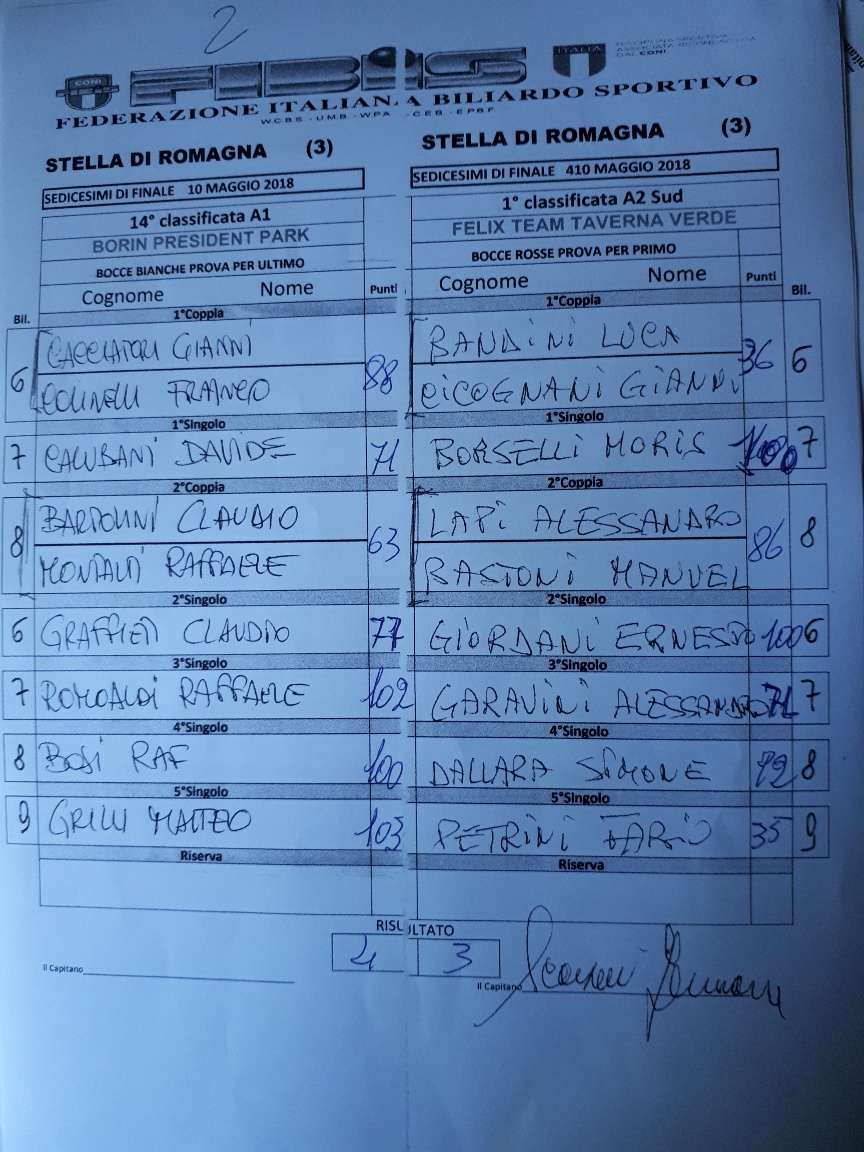 2
CONI FIBIS ITALIA
FEDERAZIONE ITALIANA BILIARDO SPORTIVO
W.C.B.S - U.M.B - W.P.A - C.E.B - E.P.B.F
STELLA DI ROMAGNA (3) STELLA DI ROMAGNA (3)
SEDICESIMI DI FINALE 10 MAGGIO 2018 SEDICESIMI DI FINALE 410 MAGGIO 2018
14° classificata A1 1° classificata A2 Sud
BORIN PRESIDENT PARK FELIX TEAM TAVERNA VERDE
BOCCE BIANCHE PROVA PER ULTIMO BOCCE ROSSE PROVA PER PRIMO
Bil. Cognome Nome Punti Cognome Nome Punti Bil.
1°Coppia 1°Coppia
6 CACCIATORI GIANNI 88 BANDINI LUCA 36 6
FRANCO CICOGNANI GIANNI
1°Singolo 1°Singolo
7 CALUBANI DAVIDE 71 BORSELLI MORIS 100 7
2°Coppia 2°Coppia
8 BARTOLINI CLAUDIO 63 LAPI ALESSANDRO 86 8
MONTALTI RAFFAELE BASTONI MANUEL
2°Singolo 2°Singolo
6 GRAFFIETI CLAUDIO 77 GIORDANI ERNESTO 100 6
3°Singolo 3°Singolo
7 ROMOALDI RAFFAELE 102 GARAVINI ALESSANDRO 71 7
4°Singolo 4°Singolo
8 BOSI RAF 100 DALLARA SIMONE 92 8
5°Singolo 5°Singolo
9 GRILLI MATTEO 103 PETRINI FABIO 35 9
Riserva Riserva
RISULTATO
4 3
Il Capitano Il Capitano